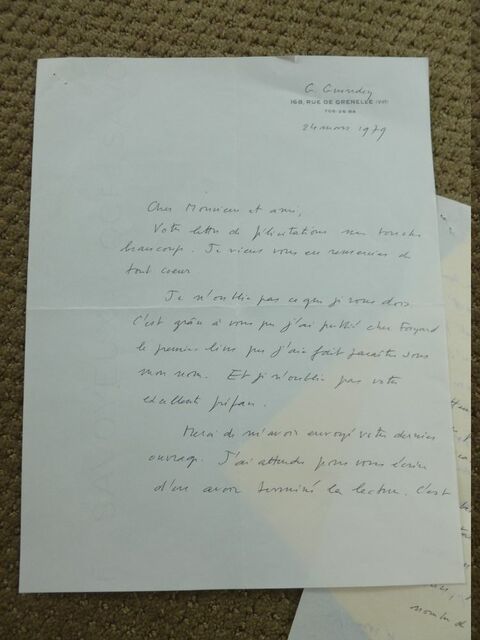 G. Guindey
168, RUE DE GRENELLE (VIIᵉ)
24 mars 1979
Cher Monsieur et ami,
Votre lettre de félicitations me touche
beaucoup. Je viens vous en remercier de
tout coeur
Je n'oublie pas ce que je vous dois.
C'est grâce à vous que j'ai publié chez Fayard
le premier livre que j'aie fait paraître sous
mon nom. Et je n'oublie pas votre
excellente préface.
Merci de m'avoir envoyé votre dernier
ouvrage. J'ai attendu pour vous écrire
d'en avoir terminé la lecture. C'est
nombre de